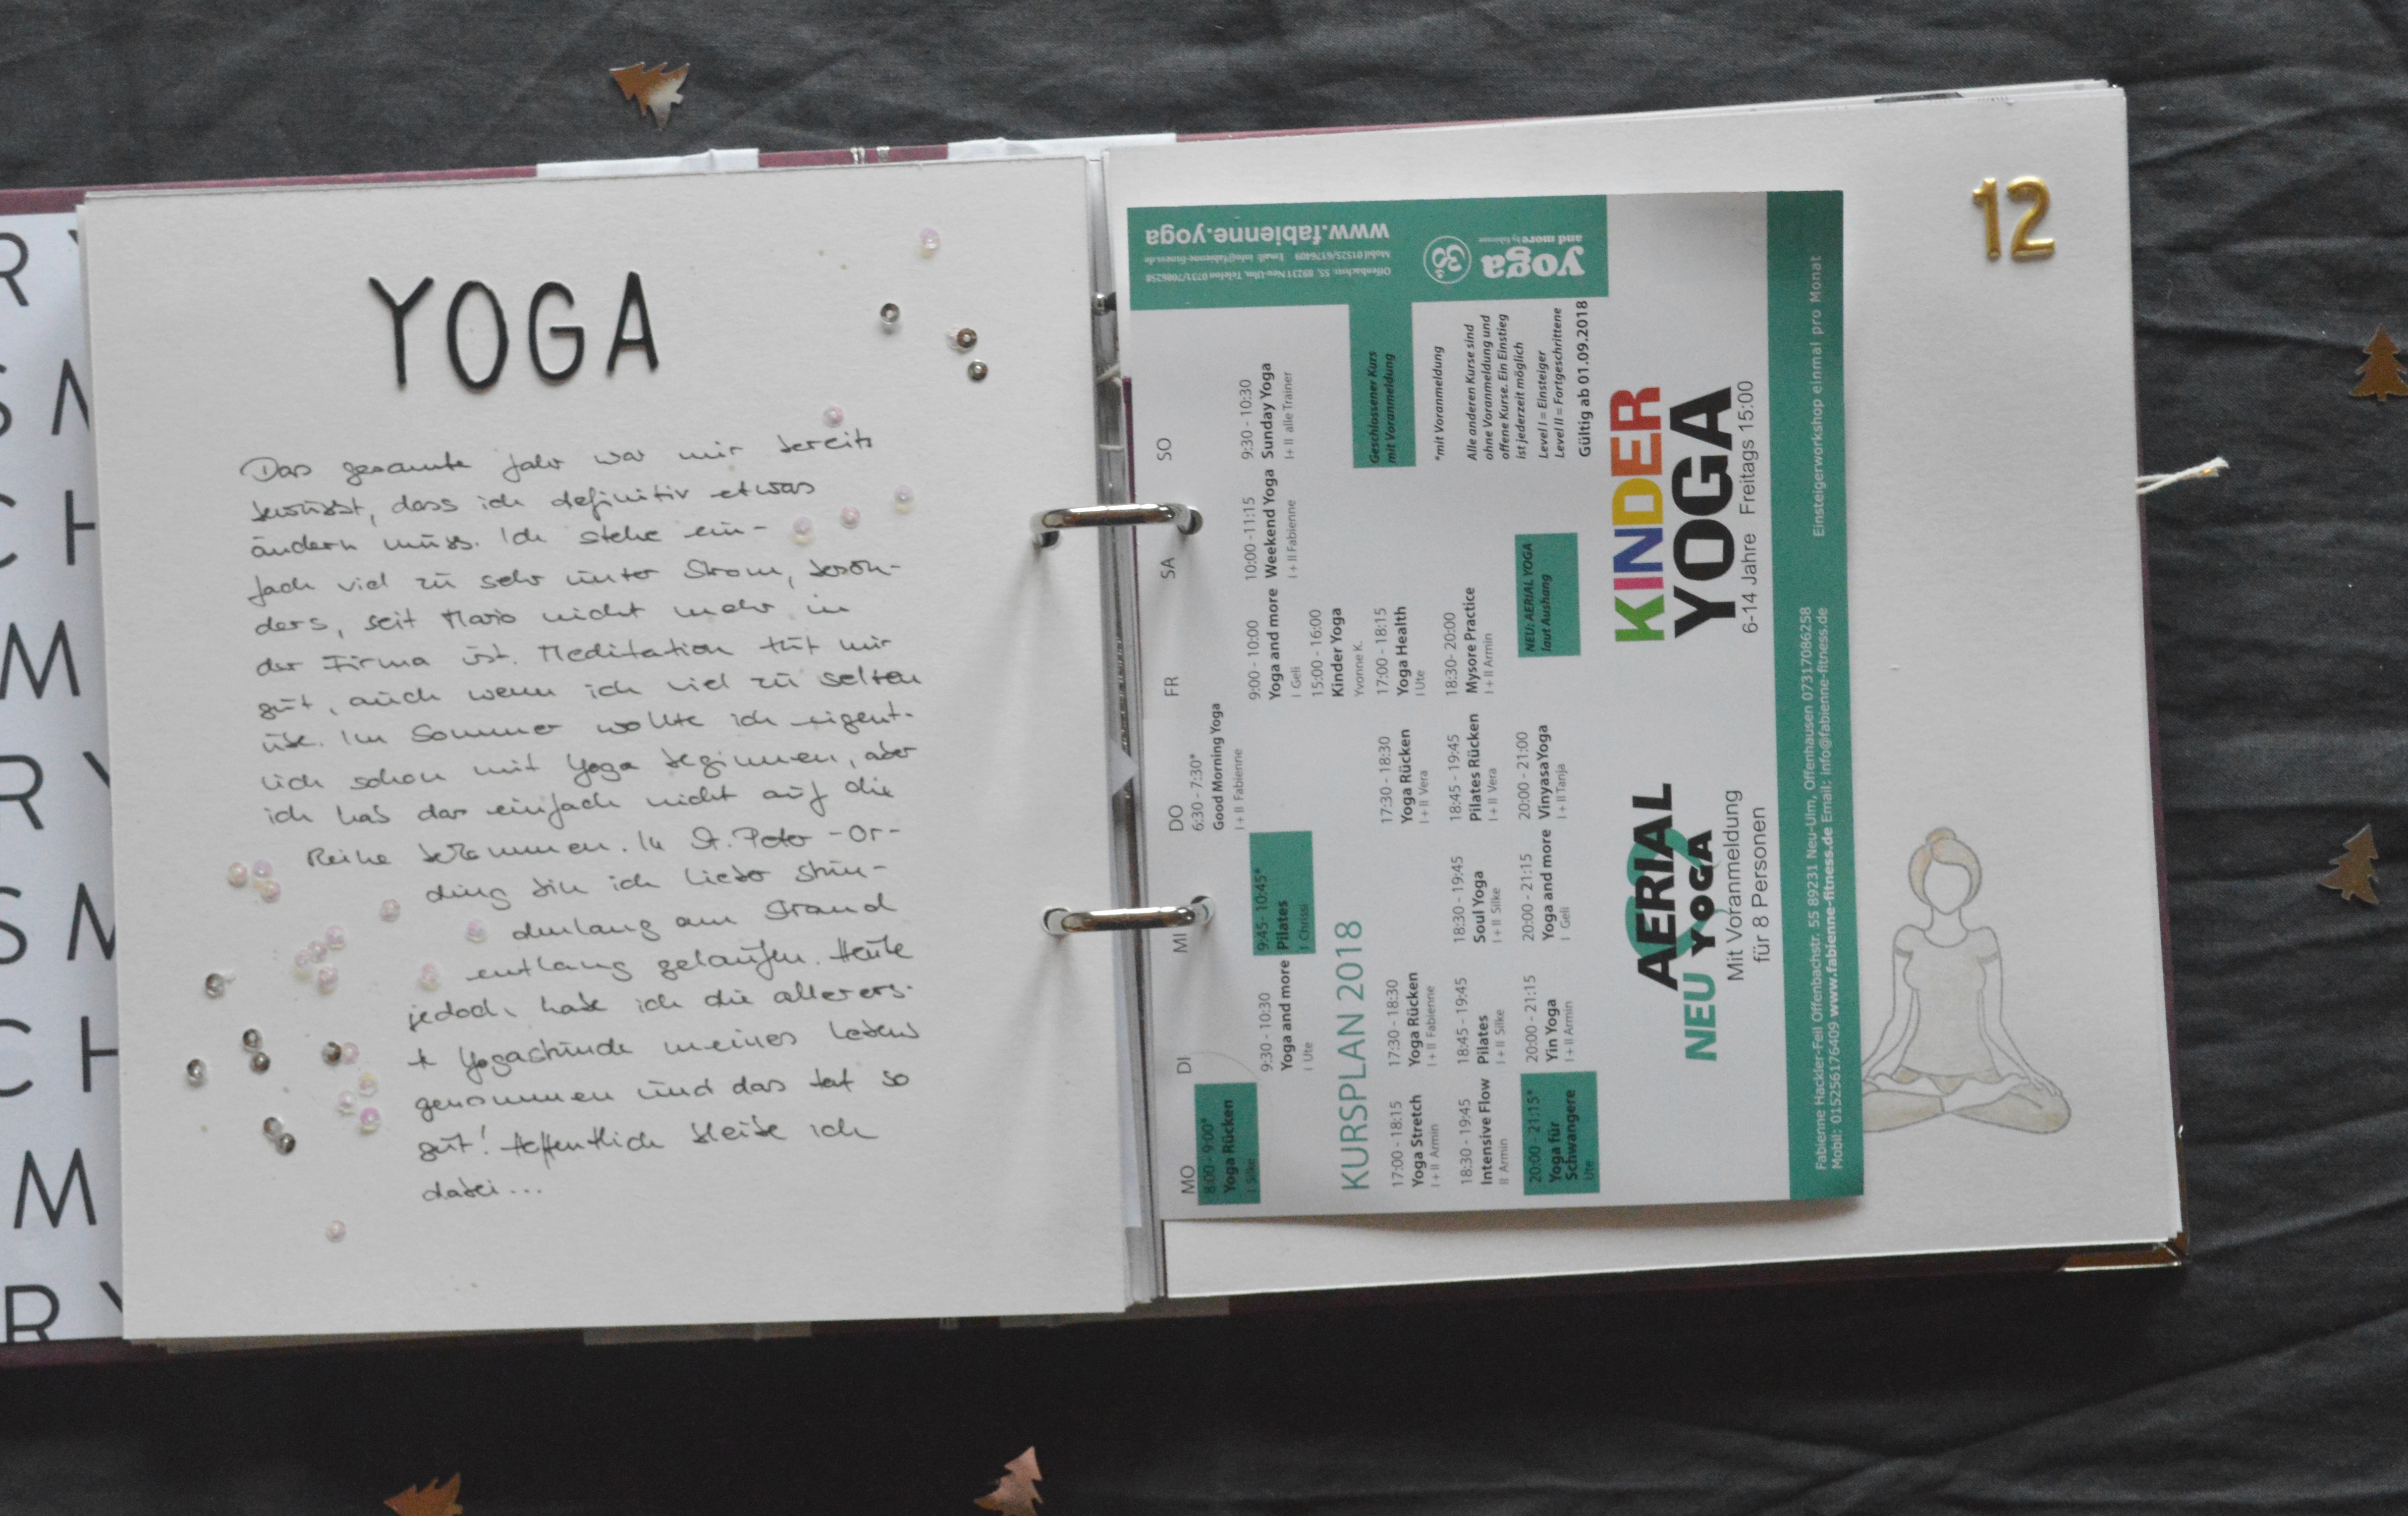 YOGA
Das gesamte Jahr war mir bereits
bewusst, dass ich definitiv etwas
ändern muss. Ich stehe ein-
fach viel zu sehr unter Strom, beson-
ders, seit Mario nicht mehr in
der Firma ist. Meditation tut mir
gut, auch wenn ich viel zu selten
übe. Im Sommer wollte ich eigent-
lich schon mit Yoga beginnen, aber
ich hab das einfach nicht auf die
Reihe bekommen. In St. Peter-Or-
ding bin ich lieber stun-
denlang am Strand
entlang gelaufen. Heute
jedoch habe ich die allerers-
te Yogastunde meines Lebens
genommen und das tat so
gut! Hoffentlich bleibe ich
dabei...
12
MO
8:00 - 9:00*
Yoga Rücken
I Silke
DI
9:30 - 10:30
Yoga and more
I Ute
MI
9:45 - 10:45*
Pilates
I Chrissi
DO
6:30 - 7:30*
Good Morning Yoga
I + II Fabienne
FR
9:00 - 10:00
Yoga and more
I Geli
15:00 - 16:00
Kinder Yoga
Yvonne K.
SA
10:00 -11:15
Weekend Yoga
I + II Fabienne
SO
9:30 - 10:30
Sunday Yoga
I + II alle Trainer
KURSPLAN 2018
17:00 - 18:15
Yoga Stretch
I + II Armin
18:30 - 19:45
Intensive Flow
II Armin
20:00 - 21:15*
Yoga für
Schwangere
Ute
17:30 - 18:30
Yoga Rücken
I + II Fabienne
18:45 - 19:45
Pilates
I + II Silke
20:00 - 21:15
Yin Yoga
I + II Armin
18:30 - 19:45
Soul Yoga
I + II Silke
20:00 - 21:15
Yoga and more
I Geli
17:30 - 18:30
Yoga Rücken
I + II Vera
18:45 - 19:45
Pilates Rücken
I + II Vera
20:00 - 21:00
VinyasaYoga
I + II Tanja
17:00 - 18:15
Yoga Health
I Ute
18:30- 20:00
Mysore Practice
I + II Armin
NEU: AERIAL YOGA
laut Aushang
Geschlossener Kurs
mit Voranmeldung
*mit Voranmeldung
Alle anderen Kurse sind
ohne Voranmeldung und
offene Kurse. Ein Einstieg
ist jederzeit möglich
Level I = Einsteiger
Level II = Fortgeschrittene
Gültig ab 01.09.2018
yoga
and more by fabienne
Offenbachstr. 55, 89231 Neu-Ulm, Telefon 0731/7086258
Mobil 01525/6176409 Email: info@fabienne-fitness.de
www.fabienne.yoga
AERIAL
NEU YOGA
Mit Voranmeldung
für 8 Personen
KINDER
YOGA
6-14 Jahre Freitags 15:00
Fabienne Hackler-Feil Offenbachstr. 55 89231 Neu-Ulm, Offenhausen 07317086258
Mobil: 015256176409 www.fabienne-fitness.de Email: info@fabienne-fitness.de
Einsteigerworkshop einmal pro Monat
R
S M
C H
M
R Y
S M
C H
M
R Y